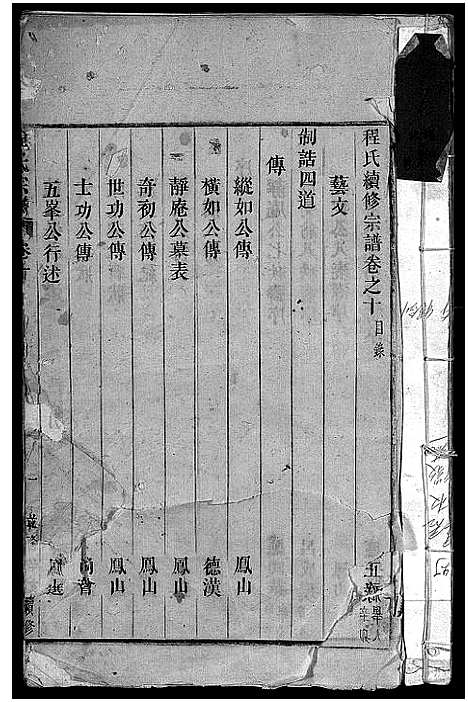 程氏續修宗譜卷之十 目錄
藝文
制誥四道
傳
縱如公傳 鳳山
橫如公傳 德漢
靜庵公墓表 鳳山
奇初公傳 鳳山
世功公傳 鳳山
士功公傳
五峯公行述
續修